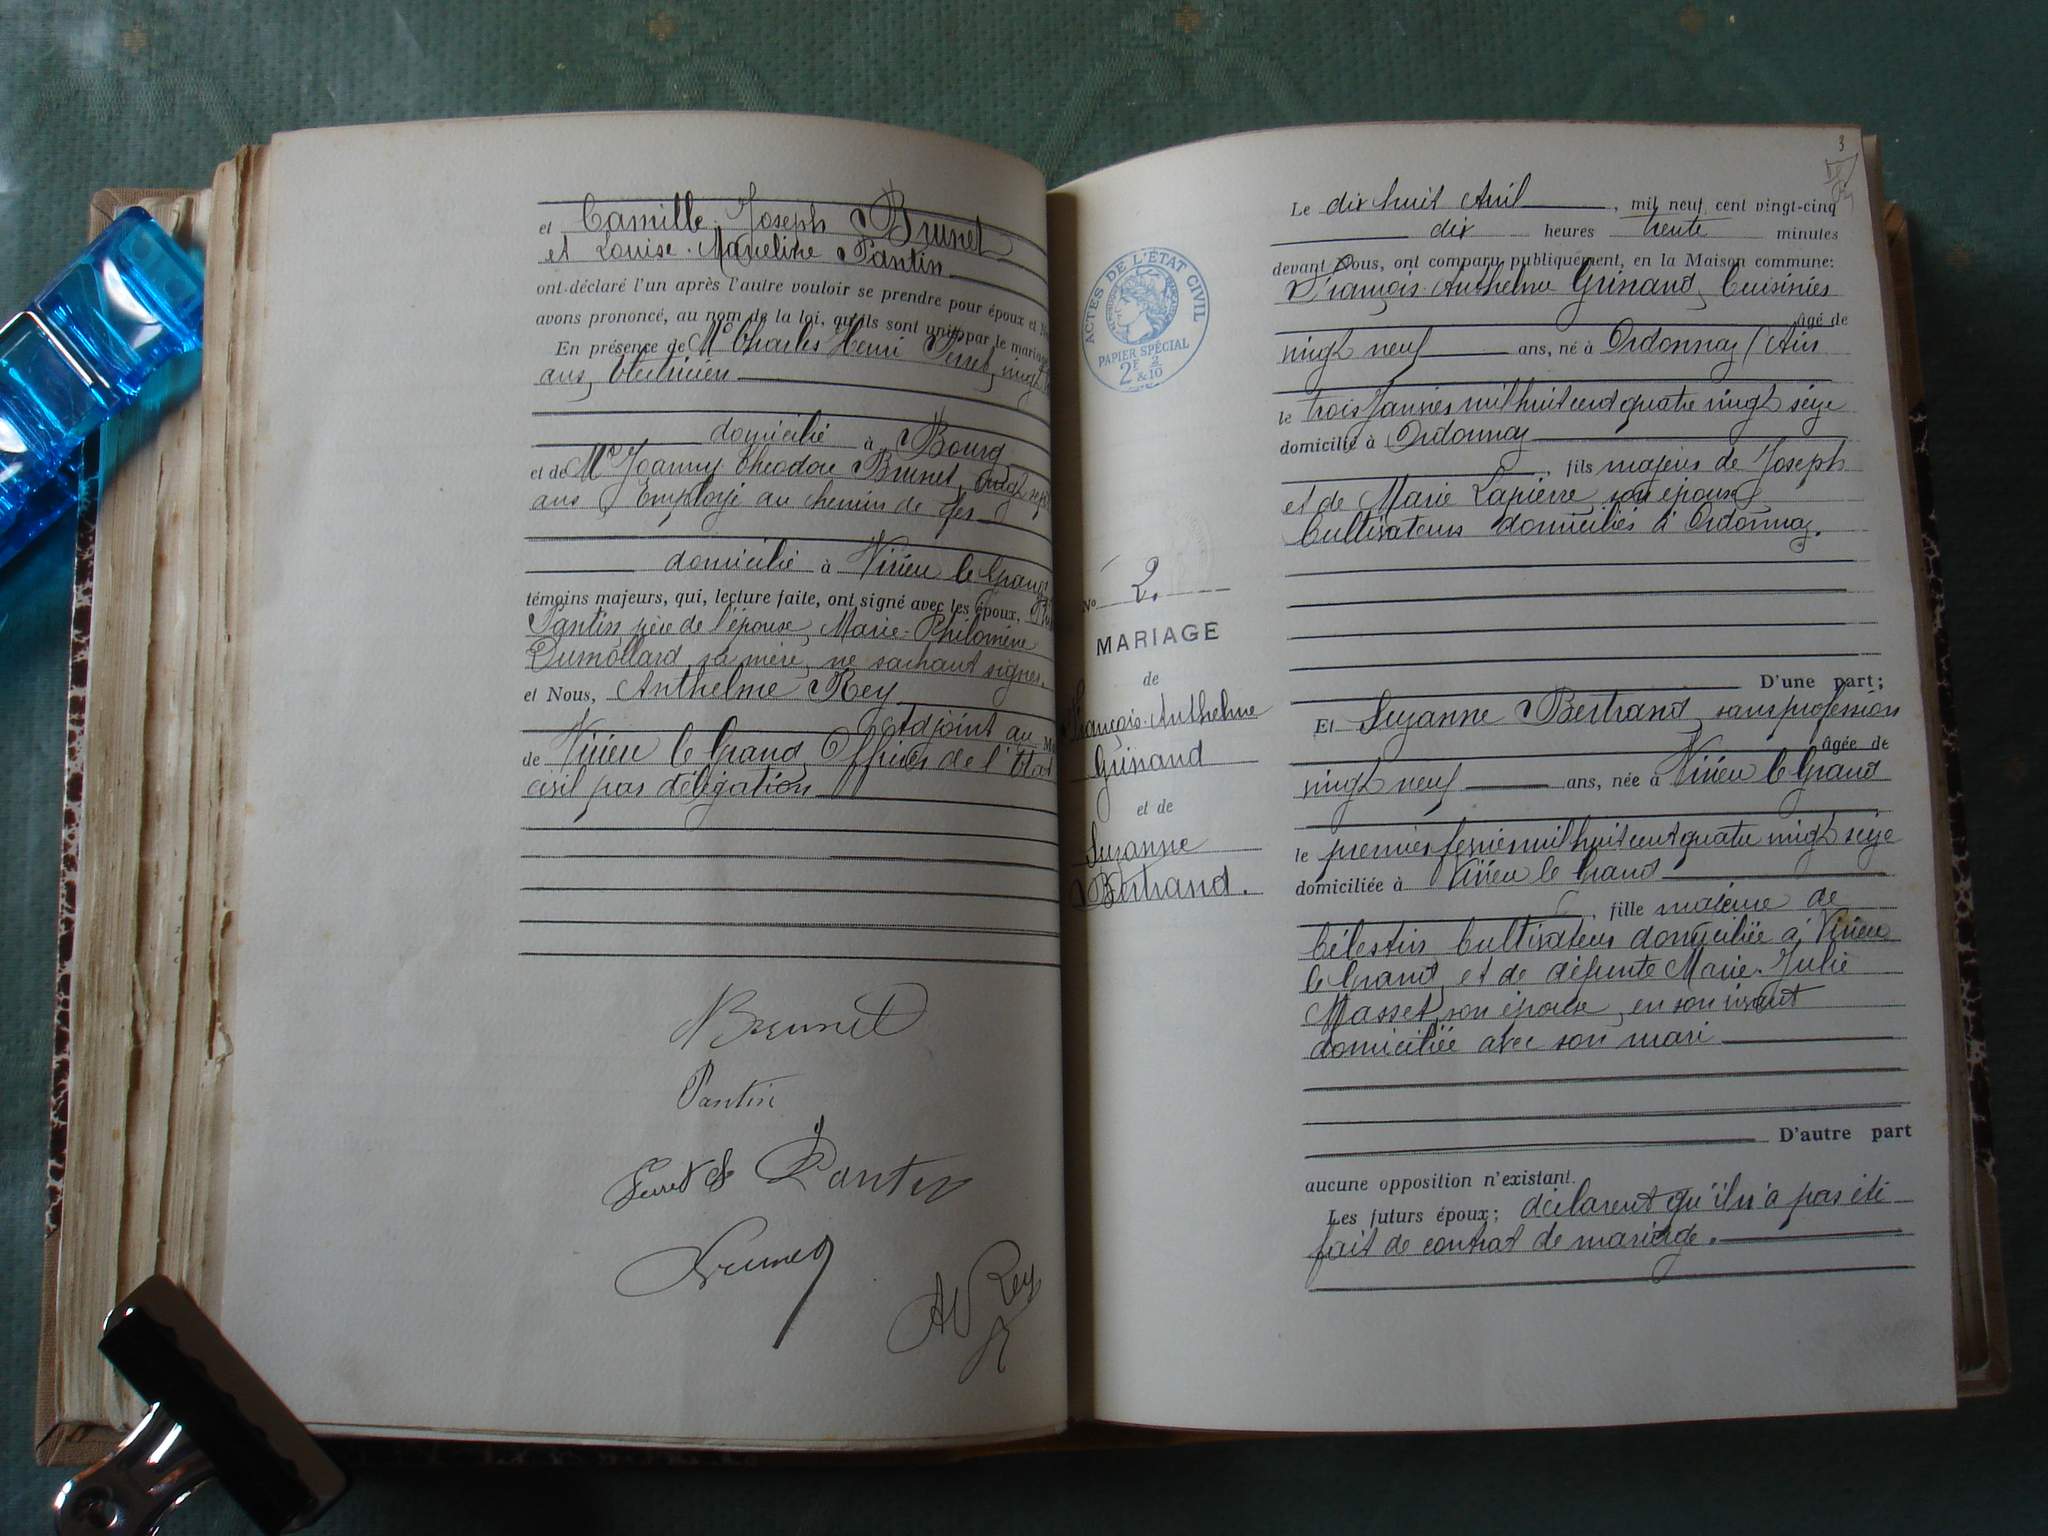 et Camille Joseph Brunet
et Louise Marcelline Pantin
ont déclaré l'un après l'autre vouloir se prendre pour époux et
avons prononcé, au nom de la loi, qu'ils sont unis par le mariage
En présence de Mr Charles Henri Perret, vingt
ans, électricien
domicilié à Bourg
et de Mr Joanny Théodore Brunet, vingt sept
ans Employé au chemin de fer
domicilié à Virieu le Grand
témoins majeurs, qui, lecture faite, ont signé avec les époux,
Pantin père de l'épouse, Marie-Philomène
Dumollard, sa mère, ne sachant signer.
et Nous, Anthelme Rey
Adjoint au
de Virieu le Grand, Officier de l'Etat
civil par délégation
Brunet
Pantin
Perret Pantin
Brunet
A Rey
3
ACTES DE L'ÉTAT CIVIL
PAPIER SPÉCIAL
2F 2
&10
No 2.
MARIAGE
de
François-Anthelme
Grinand
et de
Suzanne
Bertrand.
Le dix huit Avril, mil neuf cent vingt-cinq
dix heures trente minutes
devant Nous, ont comparu publiquement, en la Maison commune:
François-Anthelme Grinand, Cuisinier
âgé de
vingt neuf ans, né à Ordonnaz (Ain
le trois Janvier mil huit cent quatre vingt seize
domicilié à Ordonnaz
, fils majeur de Joseph
et de Marie Lapierre, son épouse,
Cultivateurs domiciliés à Ordonnaz.
D'une part;
Et Suzanne Bertrand, sans profession
âgée de
vingt neuf ans, née à Virieu le Grand
le premier février mil huit cent quatre vingt seize
domiciliée à Virieu le Grand
, fille majeure de
Célestin, Cultivateur domiciliée à Virieu
le Grand, et de défunte Marie-Julie
Masset, son épouse, en son vivant
domiciliée avec son mari
D'autre part
aucune opposition n'existant.
Les futurs époux; déclarent qu'il n'a pas été
fait de contrat de mariage.